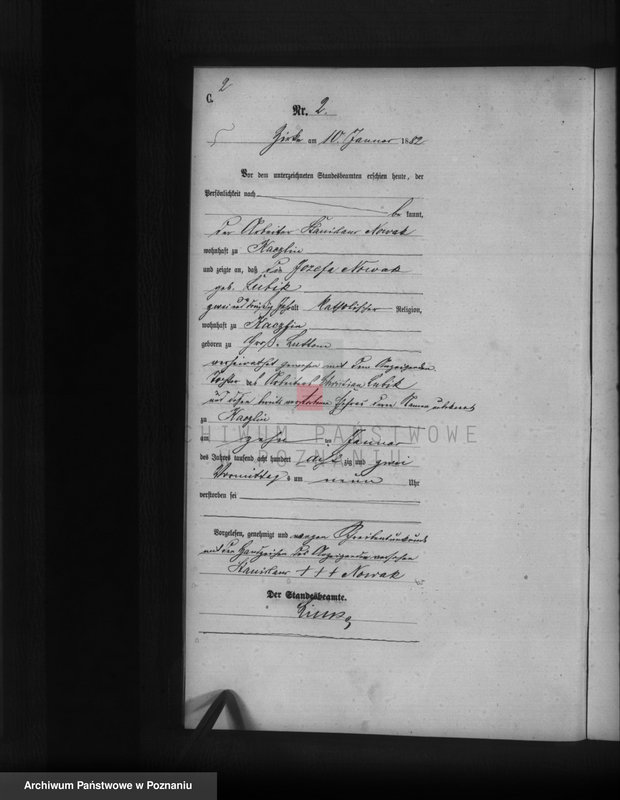 2
C.
Nr. 2.
Zirke am 10. Januar 1882
Vor dem unterzeichneten Standesbeamten erschien heute, der
Persönlichkeit nach
be kannt,
der Arbeiter Stanislaus Nowak
wohnhaft zu Kaczlin
und zeigte an, daß die Jozefa Nowak
geb. Lubik
zwei und dreißig Jahr alt Katholischer Religion,
wohnhaft zu Kaczlin
geboren zu Groß-Luttom
verheirathet gewesen mit dem Anzeigenden
Tochter des Arbeiters Christian Lubik
und dessen bereits verstorbene Ehefrau dem Namen unbekannt
zu Kaczlin
am zehn ten Januar
des Jahres tausend acht hundert acht zig und zwei
Vormittag s um neun Uhr
verstorben sei
Vorgelesen, genehmigt und wegen Schreibensunkunde
mit den Handzeichen des Anzeigenden versehen
Stanislaus + + + Nowak
Der Standesbeamte.
ARCHIWUM PAŃSTWOWE
POZNANIU
Archiwum Państwowe w Poznaniu